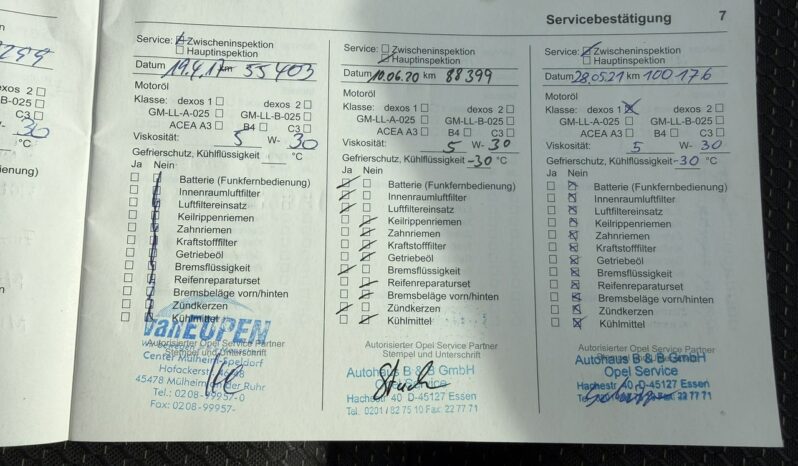 Servicebestätigung 7
299
2
B-025
C3
W- 30
°C
Service: Zwischeninspektion
Hauptinspektion
Datum 19.4.17 km 55403
Motoröl
Klasse: dexos 1 dexos 2
GM-LL-A-025 GM-LL-B-025
ACEA A3 B4 C3
Viskosität: 5 W- 30
Gefrierschutz, Kühlflüssigkeit °C
Ja Nein
Batterie (Funkfernbedienung)
Innenraumluftfilter
Luftfiltereinsatz
Keilrippenriemen
Zahnriemen
Kraftstofffilter
Getriebeöl
Bremsflüssigkeit
Reifenreparaturset
Bremsbeläge vorn/hinten
Zündkerzen
Kühlmittel
van EUPEN
Autorisierter Opel Service Partner
Stempel und Unterschrift
Center Mülheim-Speldorf
45478 Mülheim an der Ruhr
Tel.: 0208-99957-0
Fax: 0208-99957-
Service: Zwischeninspektion
Hauptinspektion
Datum 10.06.20 km 88399
Motoröl
Klasse: dexos 1 dexos 2
GM-LL-A-025 GM-LL-B-025
ACEA A3 B4 C3
Viskosität: 5 W- 30
Gefrierschutz, Kühlflüssigkeit -30 °C
Ja Nein
Batterie (Funkfernbedienung)
Innenraumluftfilter
Luftfiltereinsatz
Keilrippenriemen
Zahnriemen
Kraftstofffilter
Getriebeöl
Bremsflüssigkeit
Reifenreparaturset
Bremsbeläge vorn/hinten
Zündkerzen
Kühlmittel
Autorisierter Opel Service Partner
Stempel und Unterschrift
Autohaus B & B GmbH
Opel Service
Hachestr. 40 D-45127 Essen
Tel. 0201 / 82 75 10 Fax: 22 77 71
Service: Zwischeninspektion
Hauptinspektion
Datum 28.05.21 km 100176
Motoröl
Klasse: dexos 1 dexos 2
GM-LL-A-025 GM-LL-B-025
ACEA A3 B4 C3
Viskosität: 5 W- 30
Gefrierschutz, Kühlflüssigkeit -30 °C
Ja Nein
Batterie (Funkfernbedienung)
Innenraumluftfilter
Luftfiltereinsatz
Keilrippenriemen
Zahnriemen
Kraftstofffilter
Getriebeöl
Bremsflüssigkeit
Reifenreparaturset
Bremsbeläge vorn/hinten
Zündkerzen
Kühlmittel
Autorisierter Opel Service Partner
Autohaus B & B GmbH
Opel Service
Hachestr. 40 D-45127 Essen
Tel. Fax: 22 77 71